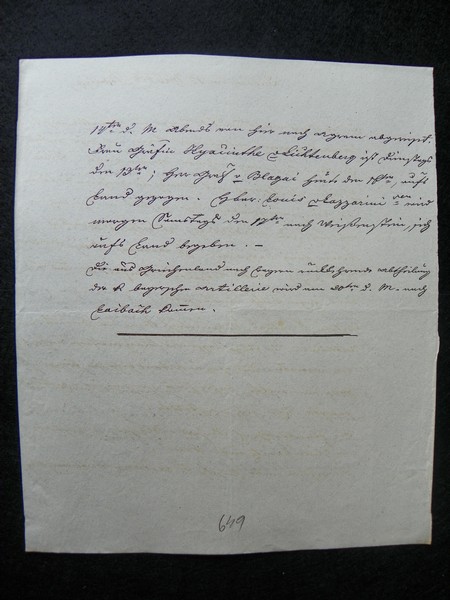 14ten d. M. Abends von hier nach Agram abgereiset.
Frau Gräfin Hyacinthe Lichtenberg ist Dienstags
den 13ten; Herr Graf Blagai heute den 16ten, aufs
Land gezogen. Louis Lazzarini wird
morgen Samstags den 17ten nach Weißenstein, sich
aufs Land begeben. –
Die aus Griechenland nach Bayern rückkehrende Abtheilung
der K. bayerschen Artillerie wird am 20ten d. M. nach
Laibach kommen.
649